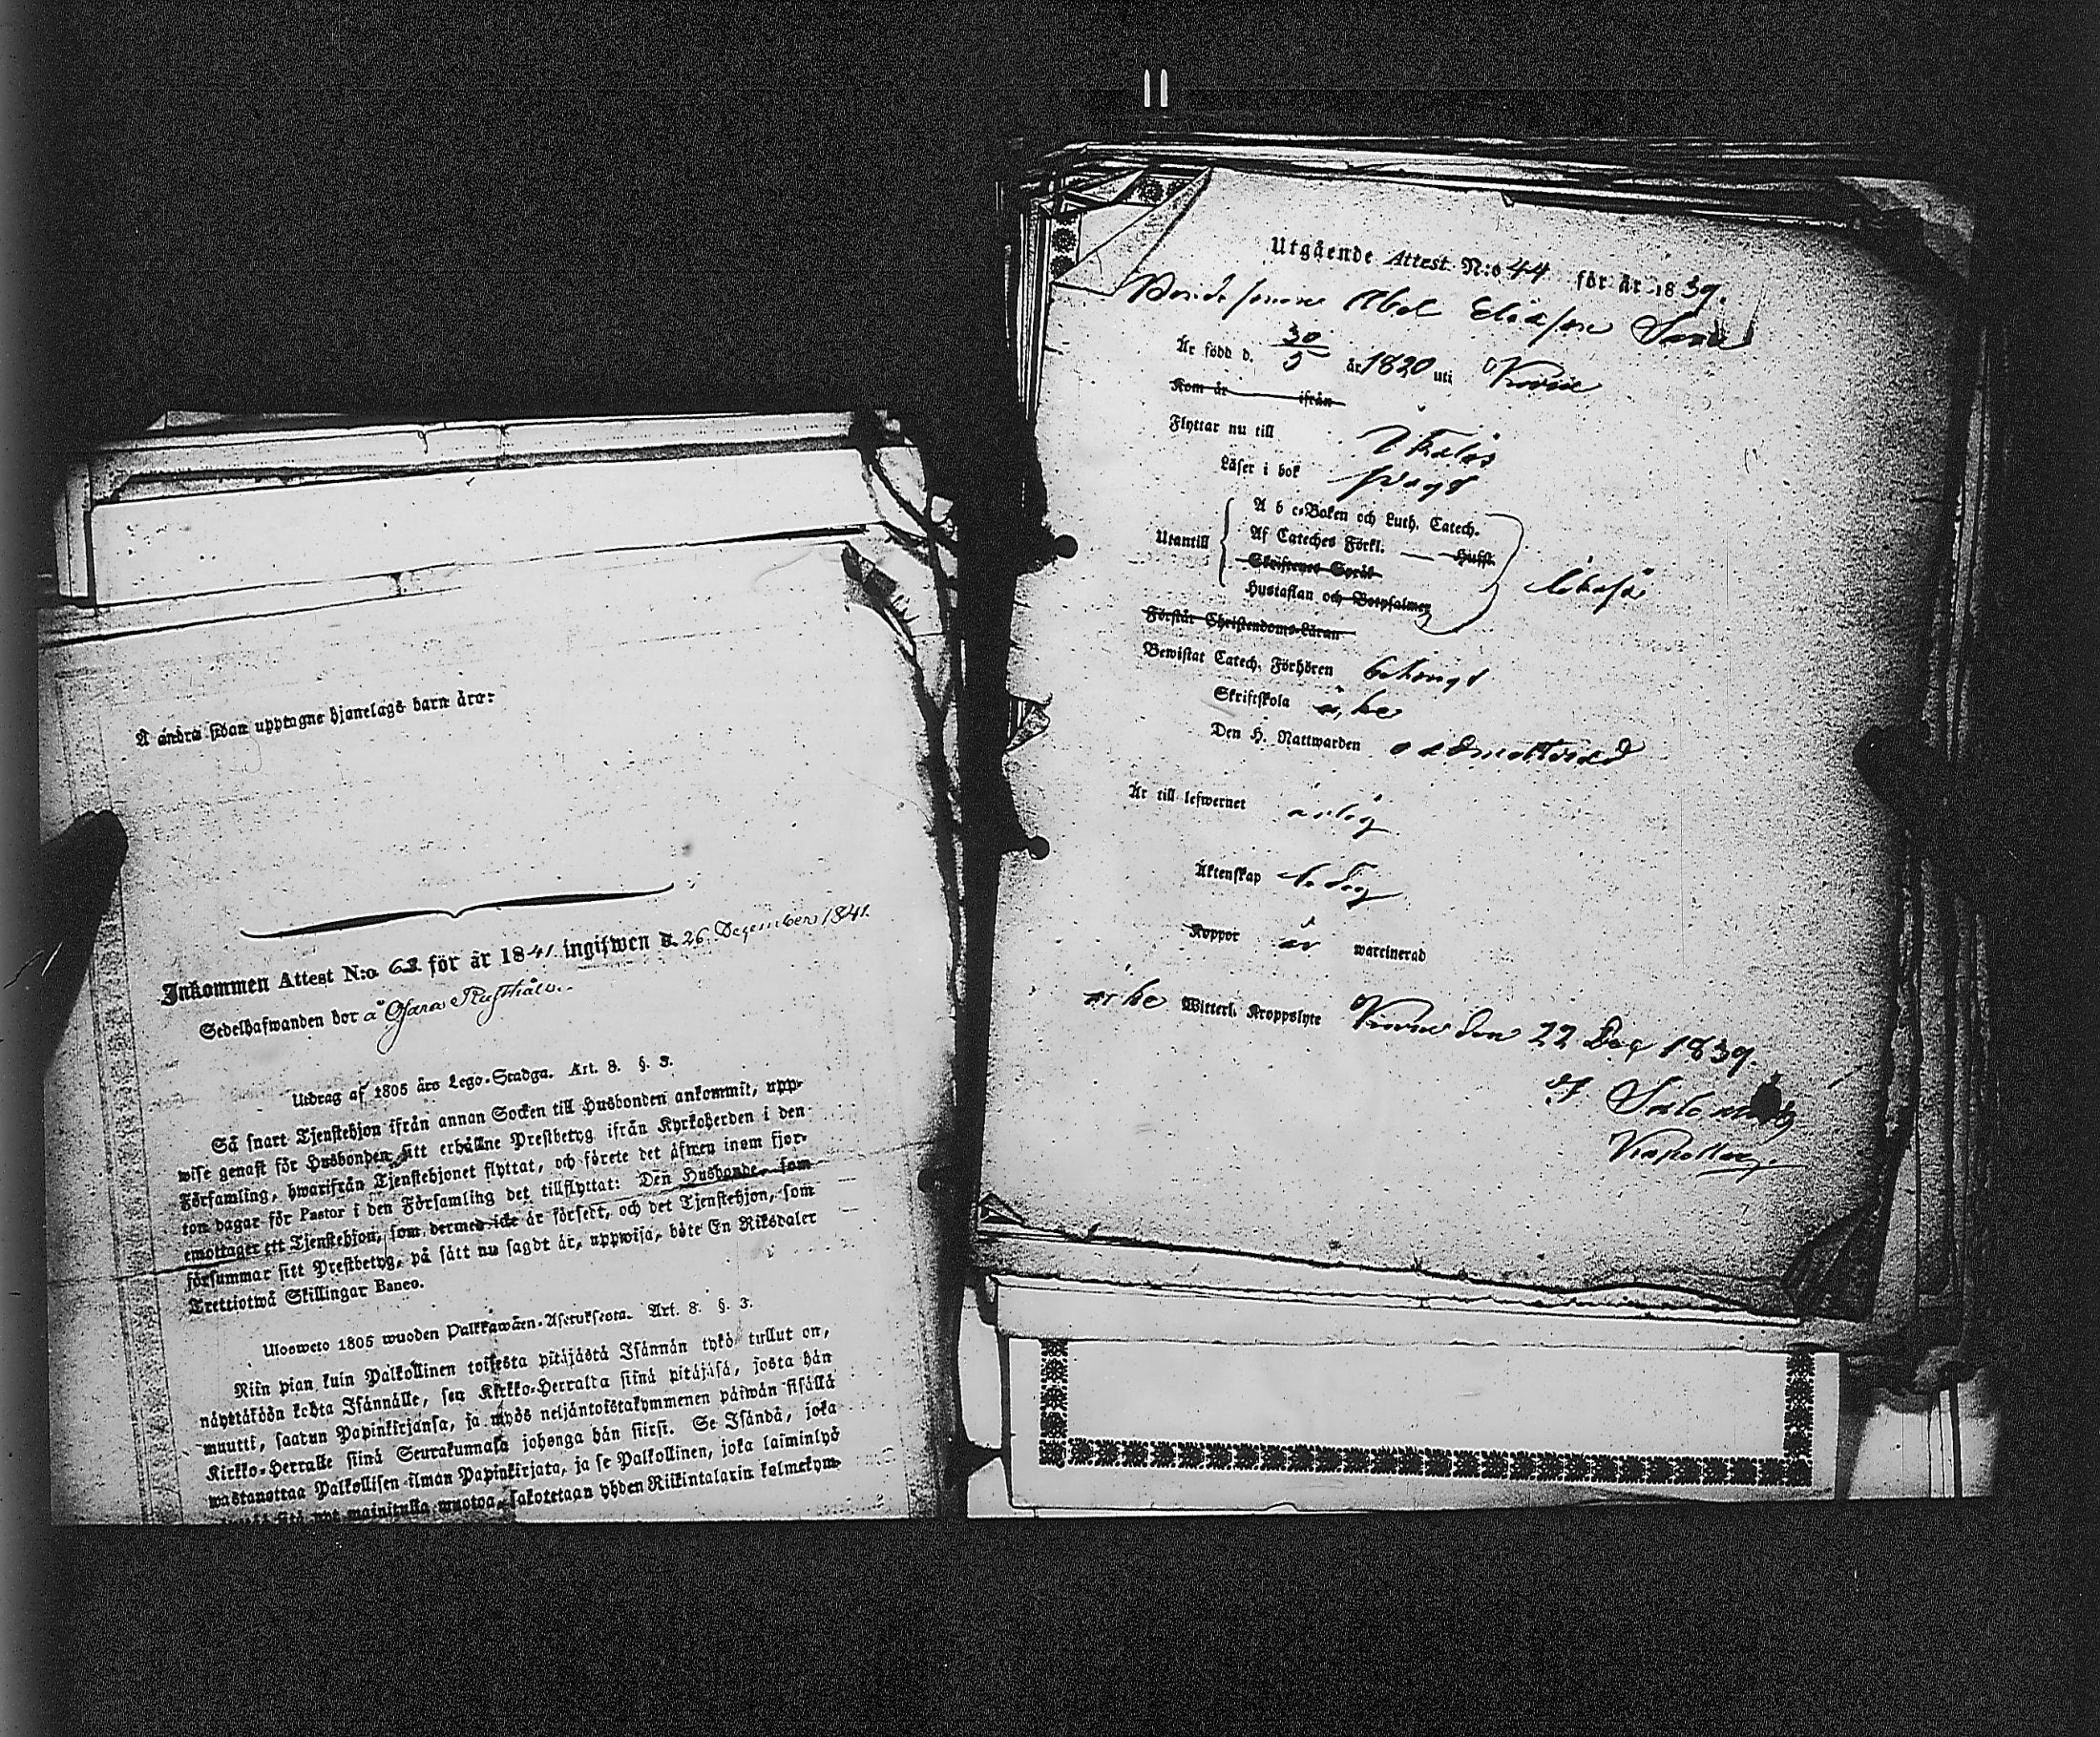 Å andra sidan upptagne hjonelags barn äro:
Inkommen Attest N:o 63 för år 1841 ingifwen d. 26 December 1841.
Sedelhafwanden bor å Ojans Rusthåll.
Utdrag af 1805 års Lego-Stadga. Art. 8. §. 3.
Så snart Tjenstehjon ifrån annan Socken till Husbonden ankommit, upp-
wise genast för Husbonden sitt erhållne Prestbetyg ifrån Kyrkoherden i den
Församling, hwarifrån Tjenstehjonet flyttat, och förete det äfwen inom fjor-
ton dagar för Pastor i den Församling det tillflyttat: Den Husbonde, som
emottager ett Tjenstehjon, som dermed icke är försedt, och det Tjenstehjon, som
försummar sitt Prestbetyg, på sätt nu sagdt är, uppwisa, böte En Riksdaler
Trettiotwå Skillingar Banco.
Ulosweto 1805 wuoden Palkkawäen-Asetuksesta. Art. 8. §. 3.
Niin pian kuin Palkollinen toisesta pitäjästä Isännän tykö tullut on,
näyttäköön kohta Isännälle, sen Kirkko-Herralta siinä pitäjäsä, josta hän
muutti, saatun Papinkirjansa, ja myös neljäntoistakymmenen päiwän sisällä
Kirkko-Herralle siinä Seurakunnasa johonga hän siirsi. Se Isändä, joka
wastanottaa Palkollisen ilman Papinkirjata, ja se Palkollinen, joka laiminlyö
sitä nyt mainitulla muotoa, sakotetaan yhden Riikintalarin kolmekym-
Utgående Attest N:o 44 för år 1839.
Bondesonen Abel Eliasson
Är född d. 30/5 år 1820 uti
Kom år ifrån
Flyttar nu till Ikalis
Läser i bok
A b c-Boken och Luth. Catech.
Utantill Af Cateches Förkl. Hufst.
Skriftenes Språk
Hustaflan och Botpsalmer
Förstår Christendoms-Läran
Bewistat Catech. Förhören
Skriftskola
Den H. Nattwarden oadmitterad
Är till lefwernet ärlig
Äktenskap ledig
Koppor är waccinerad
Witterl. Kroppslyte den 22 Dec 1839.